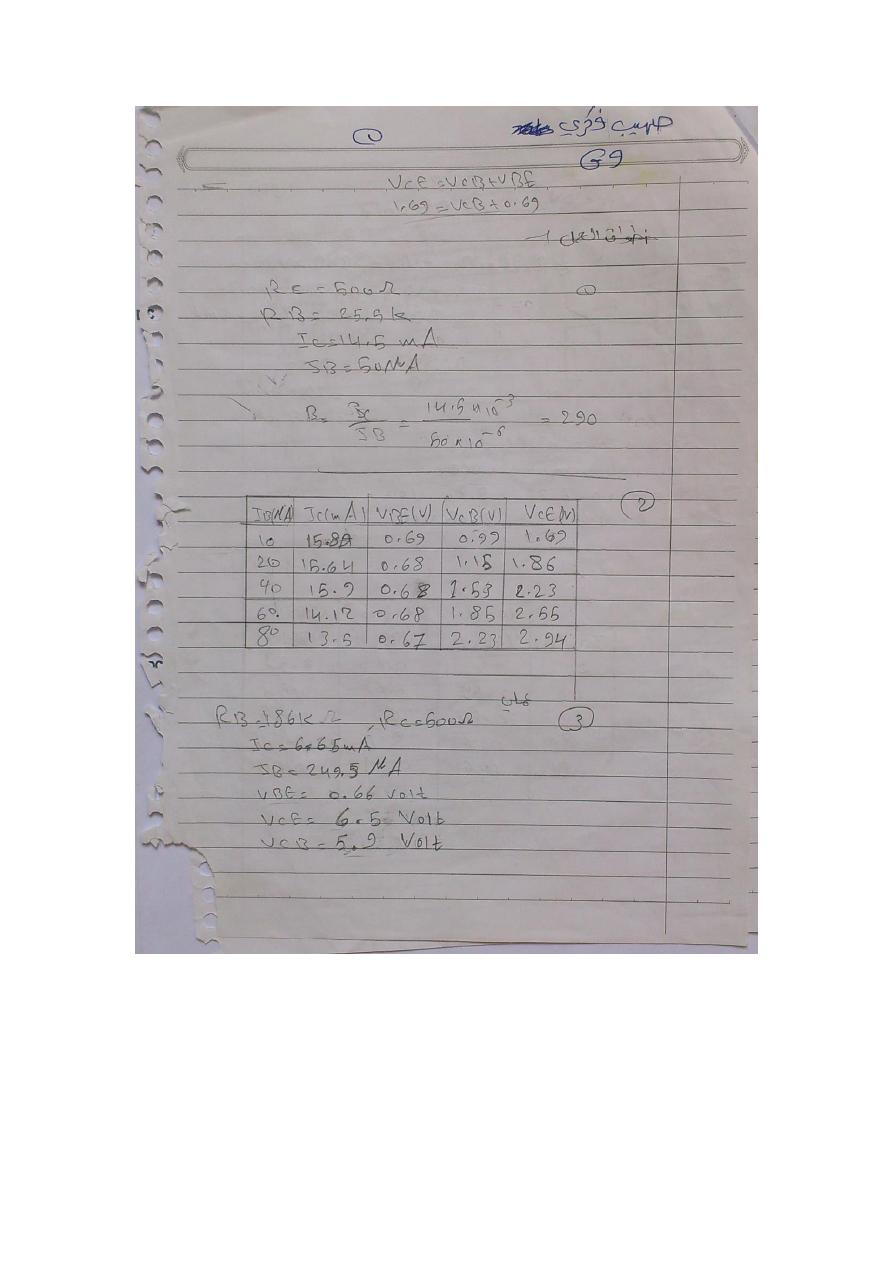 صهيب فوزي
①
G9
VCE = VCB + VBE
1.69 = VCB + 0.69
خطوات العمل :-
①
RC = 500Ω
RB = 25.5 k
IC = 14.5 mA
IB = 50 MA
B = IC/IB = 14.5 x 10⁻³ / 50 x 10⁻⁶ = 290
②
IB(MA) IC(mA) VBE(V) VCB(V) VCE(V)
10 15.89 0.69 0.99 1.69
20 15.64 0.68 1.15 1.86
40 15.9 0.68 1.53 2.23
60. 14.12 0.68 1.85 2.55
80 13.5 0.67 2.23 2.94
③
RB = 186k Ω , RC = 500Ω
IC = 6.65 mA
IB = 249.5 MA
VBE = 0.66 Volt
VCE = 6.5 Volt
VCB = 5.9 Volt